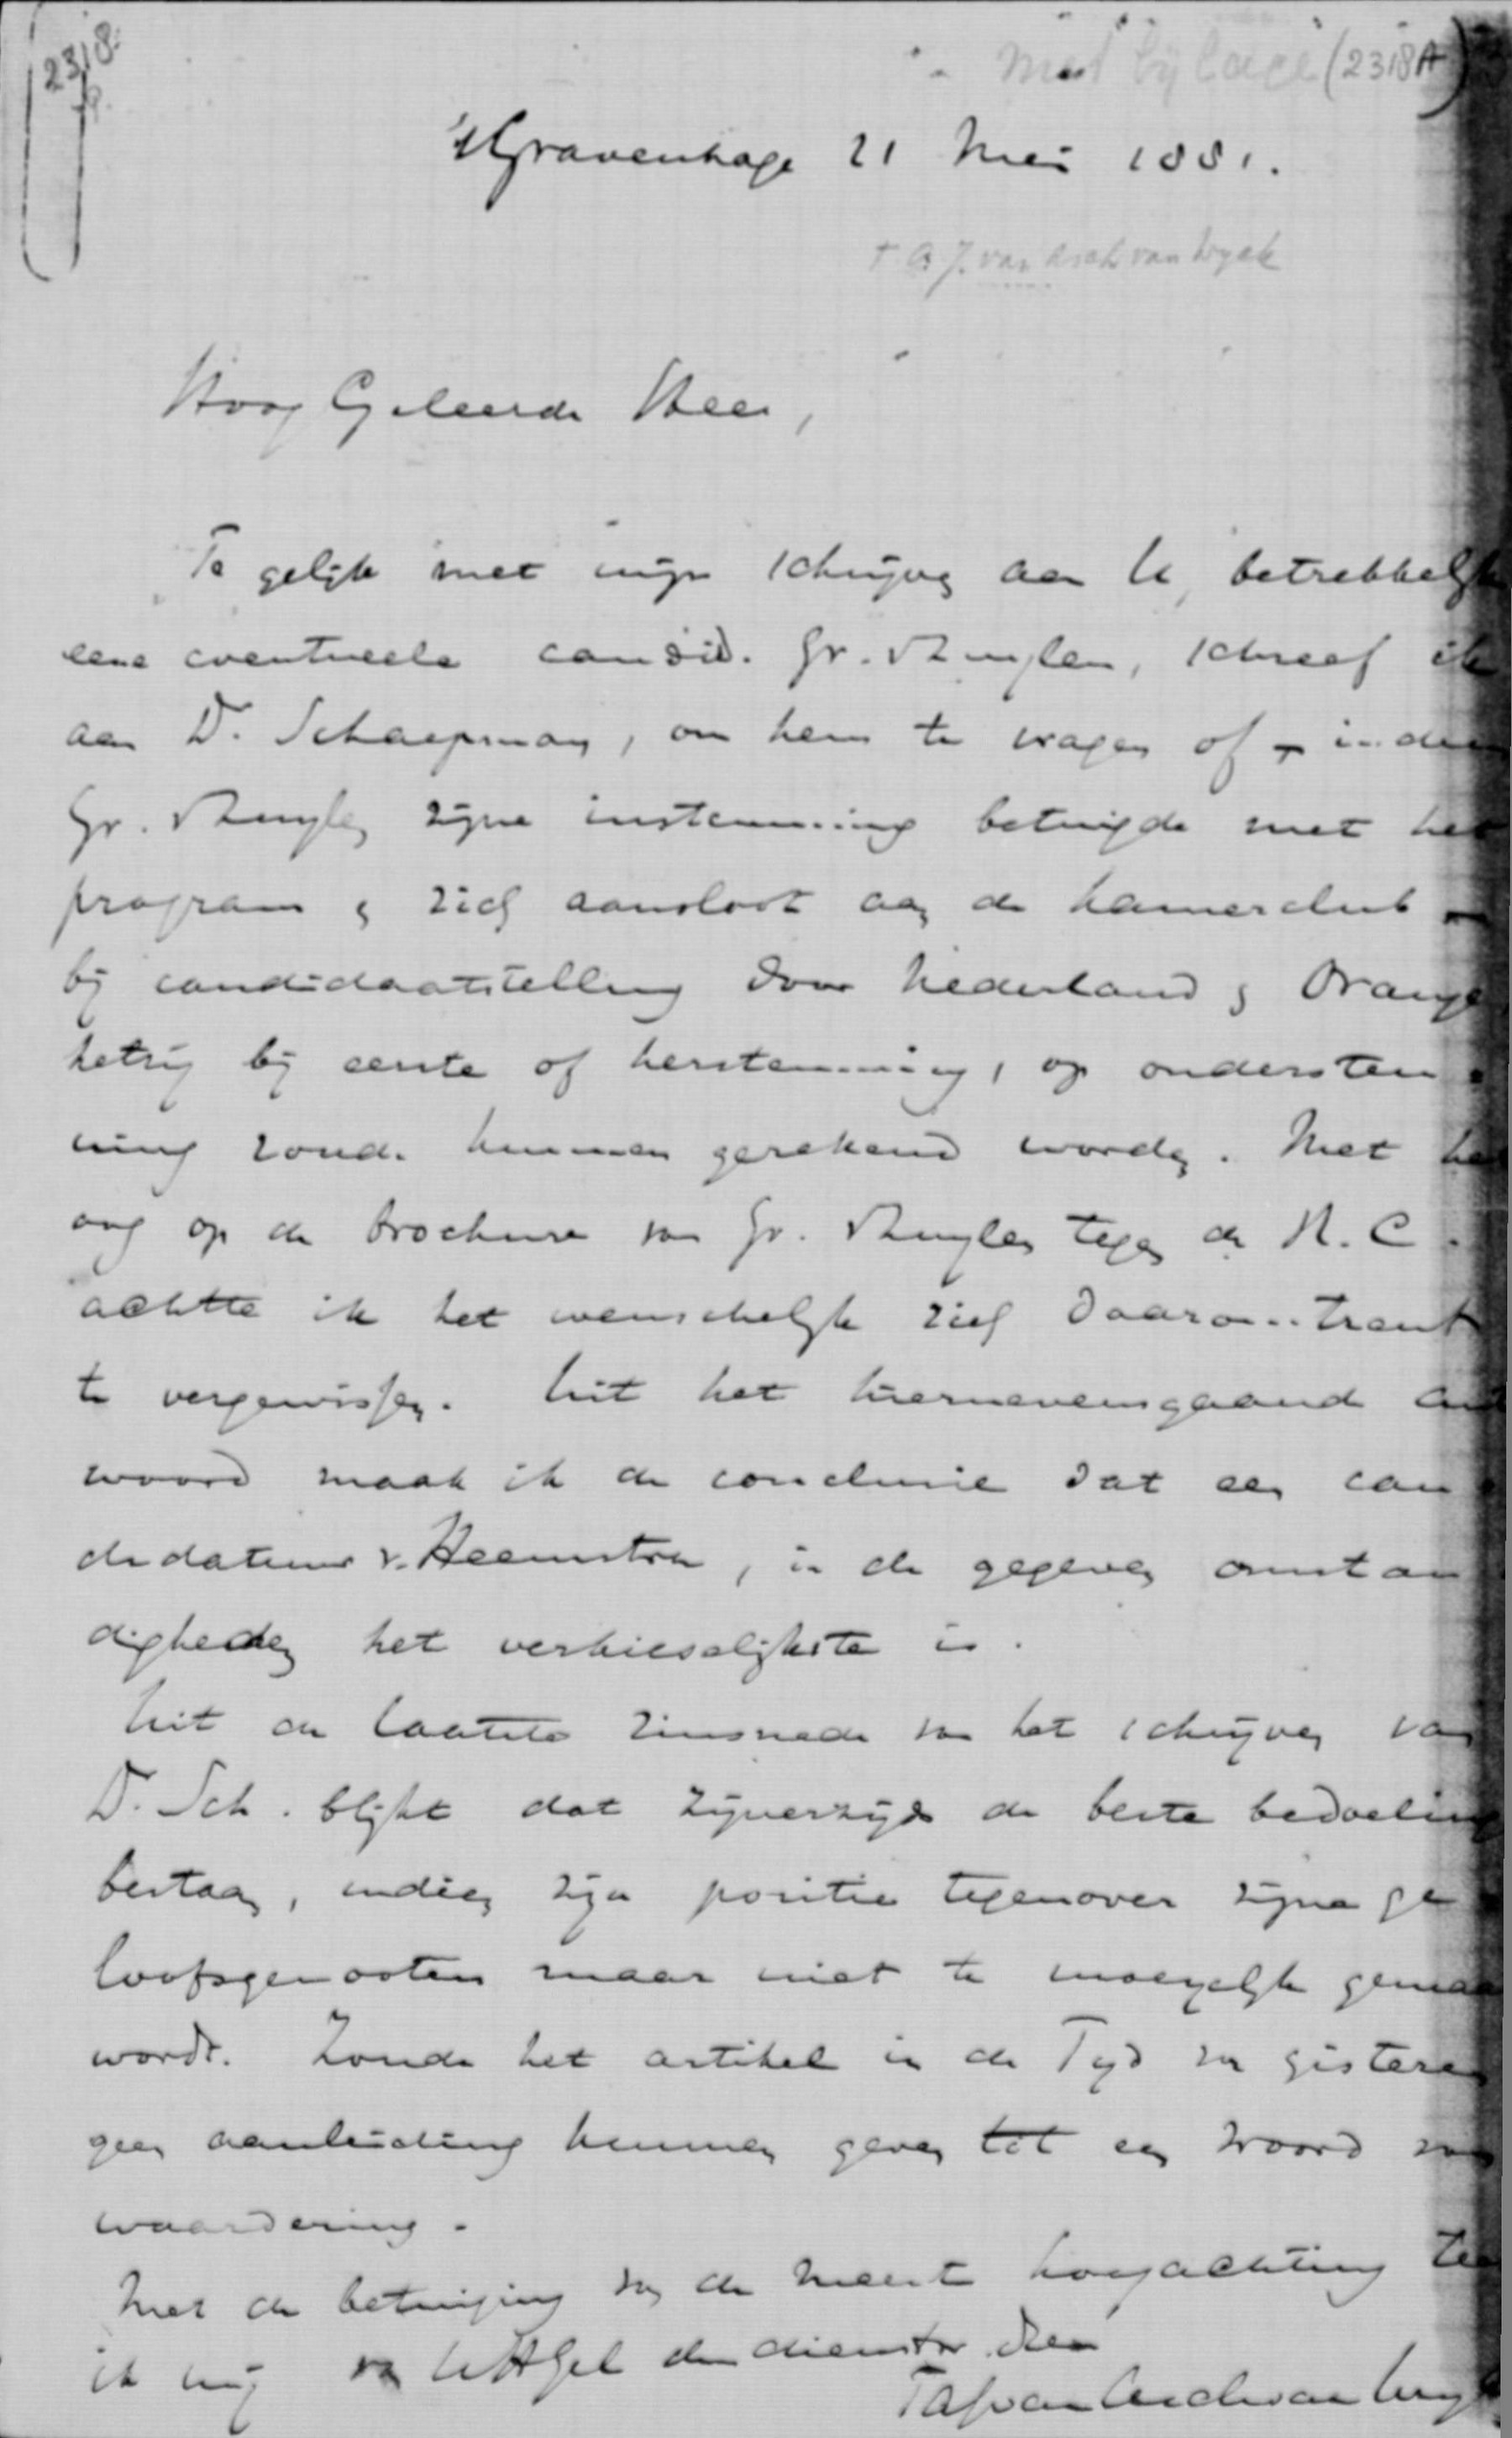 2318.
met bijlage (2318A)
's Gravenhage 21 Mei 1881.
T A J. van Asch van Wyck
Hoog Geleerde Heer,
Te gelijk met mijn schrijven aan U, betrekkelijk
eene eventueele candid. Gr. , schreef ik
aan Dr. Schaepman, om hem te vragen of - indien
Gr. zijne instemming betuigde met het
program & zich aansloot aan de kamerclub -
bij candidaatstelling door Nederland & Oranje
hetzij bij eerste of herstemming, op ondersteu
ning zoude kunnen gerekend worden. Met het
oog op de brochure van Gr. tegen de R. C.
achtte ik het wenschelijk zich daaromtrent
te vergewissen. Uit het hiernevensgaand ant
woord maak ik de conclusie dat een can
didatuur v. Heemstra, in de gegeven omstan
digheden het verkieselijkste is.
Uit de laatste zinsnede van het schrijven van
Dr. Sch. blijkt dat zijnerzijds de beste bedoeling
bestaan, indien zijn positie tegenover zijne ge
loofsgenooten maar niet te moeyelijk gemaa
wordt. Zoude het artikel in de Tyd van gisteren
geen aanleiding kunnen geven tot een woord van
waardering.
Met de betuiging van de meeste hoogachting teeken
ik mij van UHGel de dienstw. Dien
TAJvanAschvanWyck